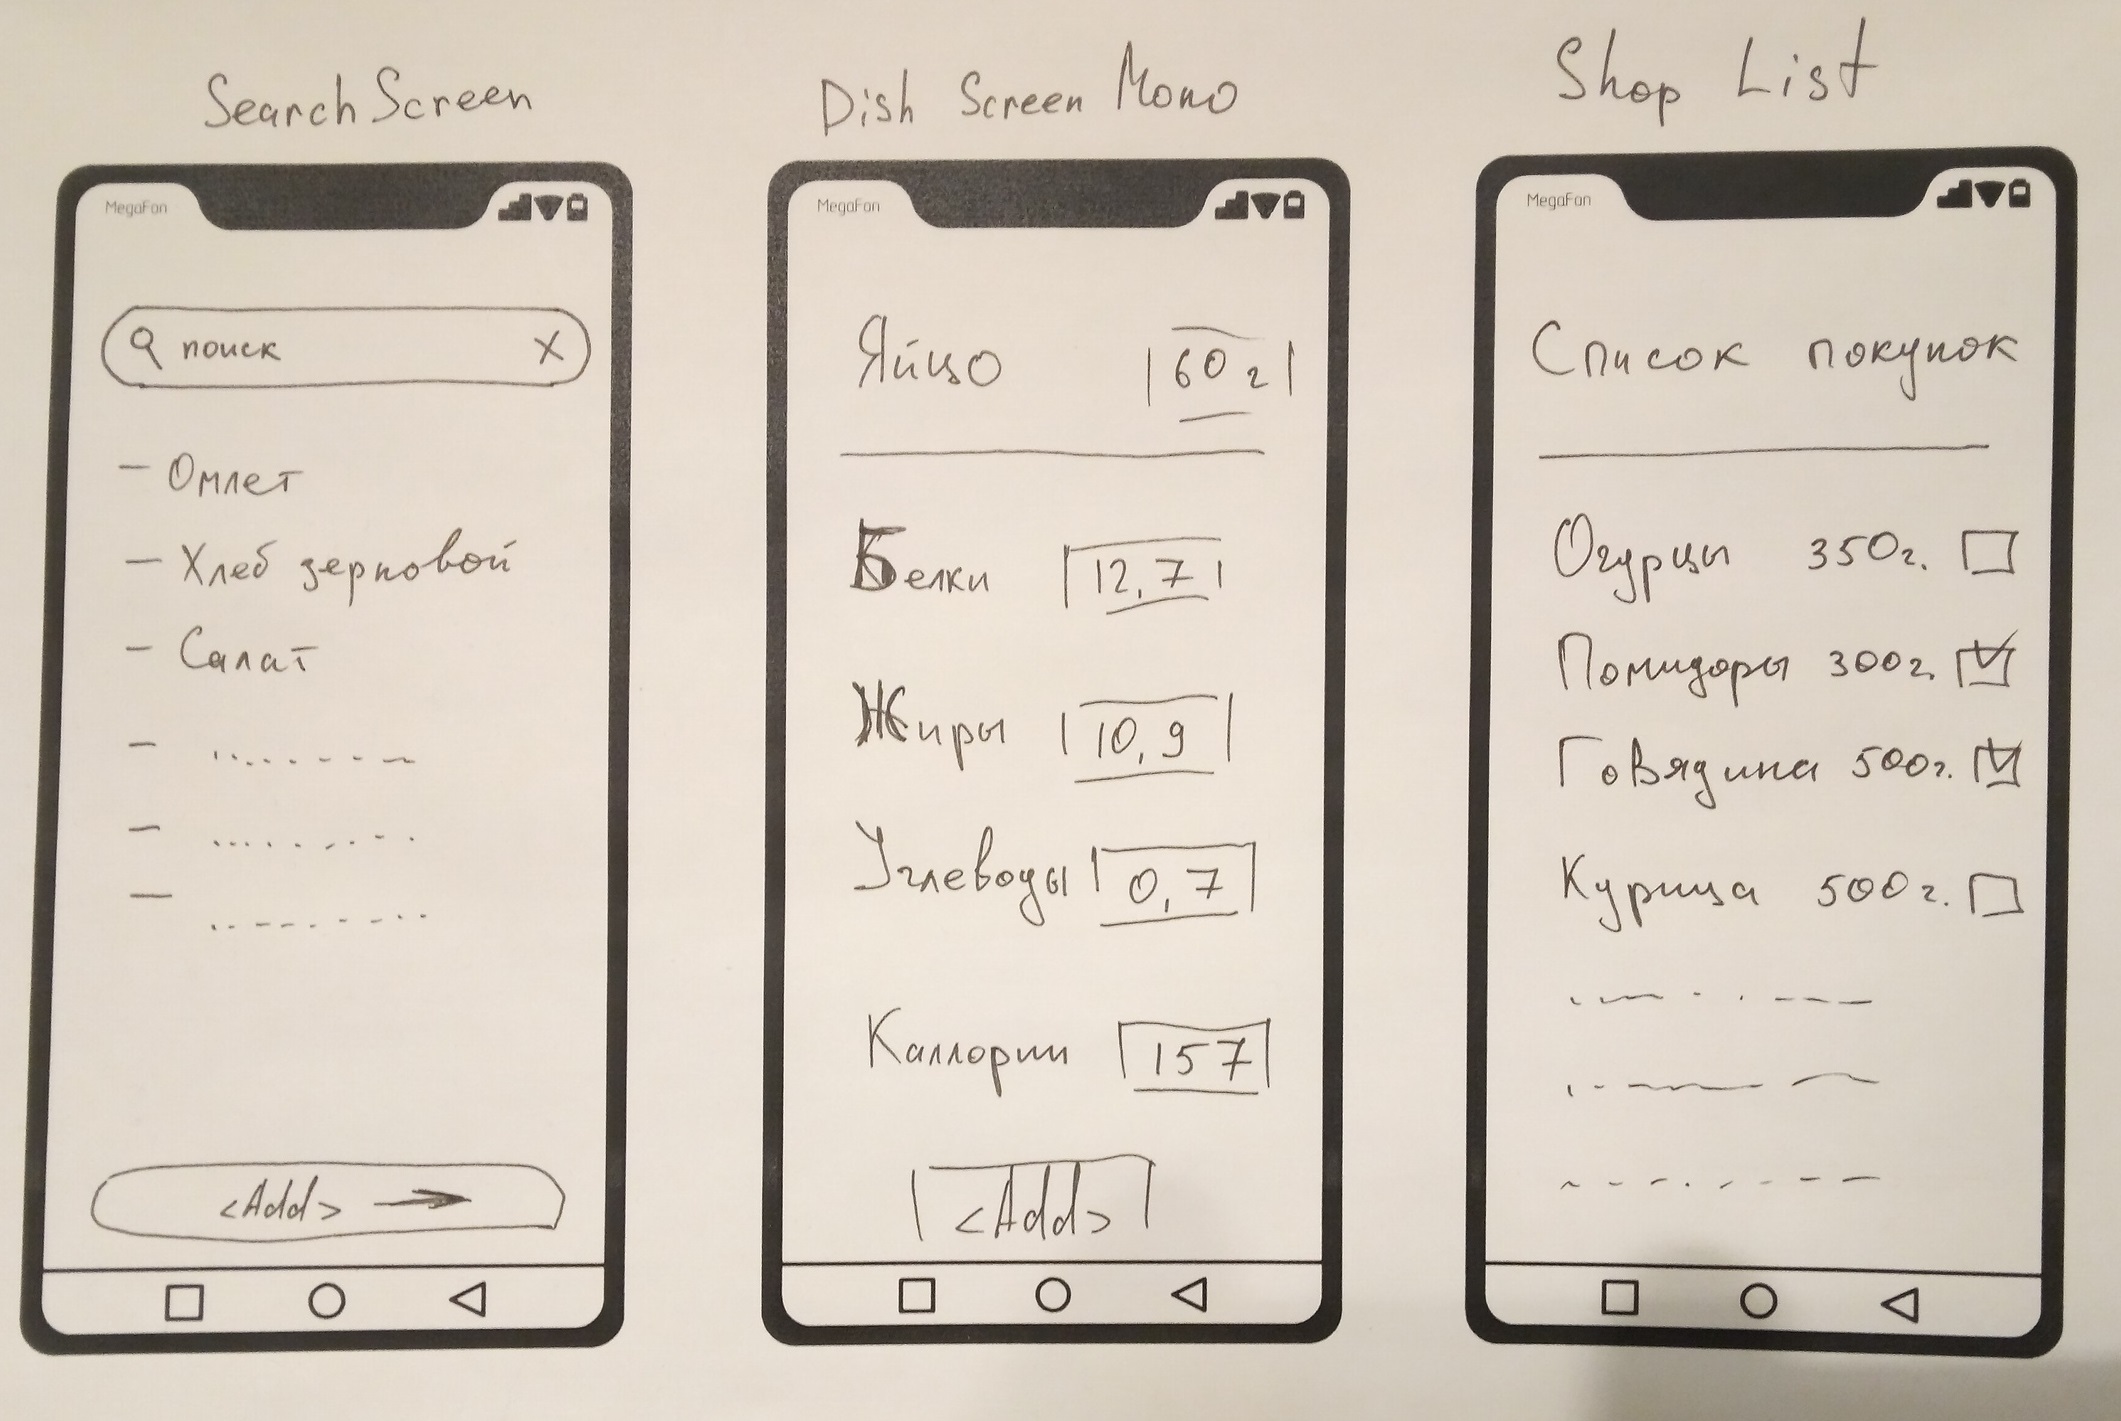 Search Screen
MegaFon
поиск X
- Омлет
- Хлеб зерновой
- Салат
<Add> →
Dish Screen Mono
MegaFon
Яйцо 60 г
Белки 12,7
Жиры 10,9
Углеводы 0,7
Каллории 157
<Add>
Shop List
MegaFon
Список покупок
Огурцы 350г.
Помидоры 300г.
Говядина 500г.
Курица 500г.